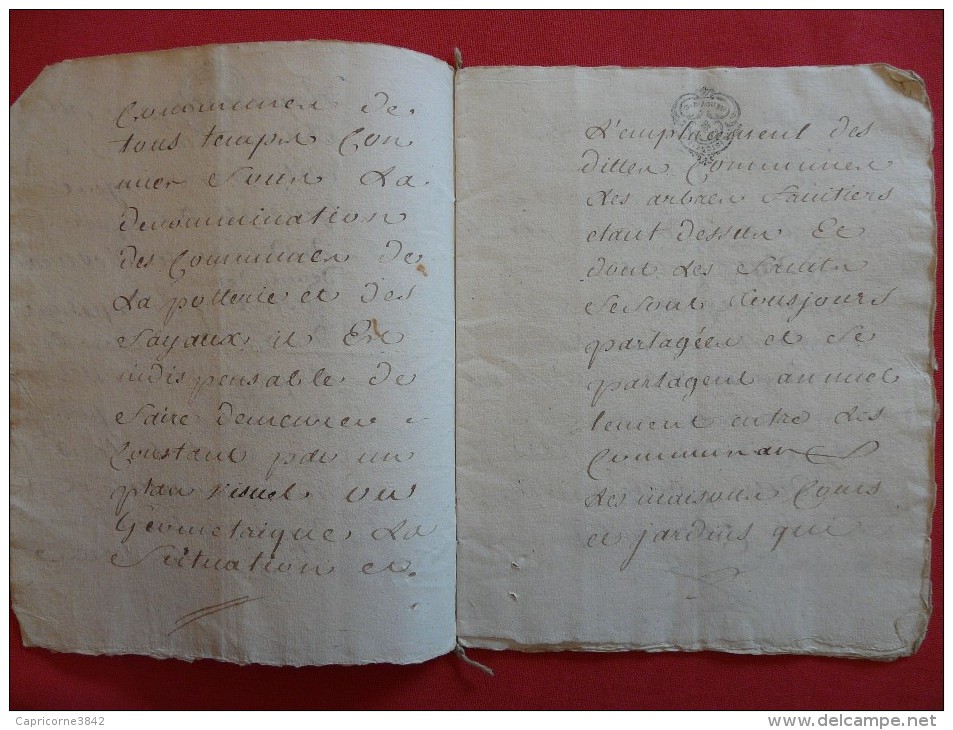 Communes de
tous temps Con
nues Sous La
denommination
des Communes de
La potterie et des
fayaux, il Est
indispensable de
faire demeurer
Constant par un
plan visuel ou
Géometrique La
Situation et
L'emplacement des
dittes Communes
Les arbres fruitiers
etant dessus Et
dont Les fruits
se sont tousjours
partagées et se
partagent annuel
lement entre Les
Communar
Les maisons Cours
et jardins qui
Capricorne3842
www.delcampe.net